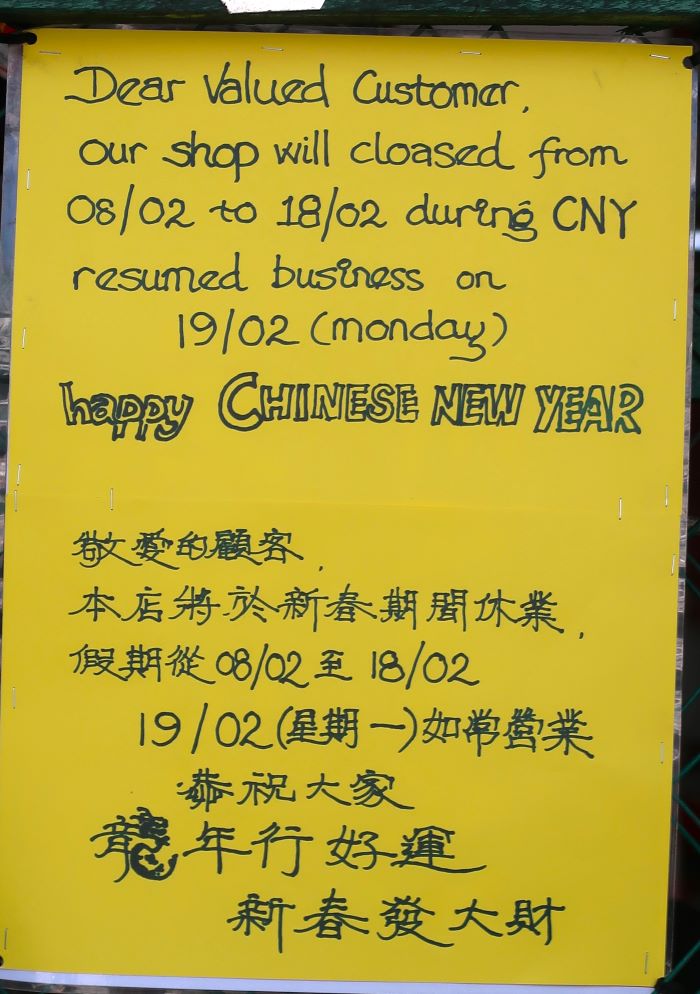 Dear Valued Customer,
our shop will cloased from
08/02 to 18/02 during CNY
resumed business on
19/02 (monday)
happy CHINESE NEW YEAR
敬愛的顧客,
本店將於新春期間休業,
假期從 08/02 至 18/02
19/02 (星期一) 如常營業
恭祝大家
龍年行好運
新春發大財